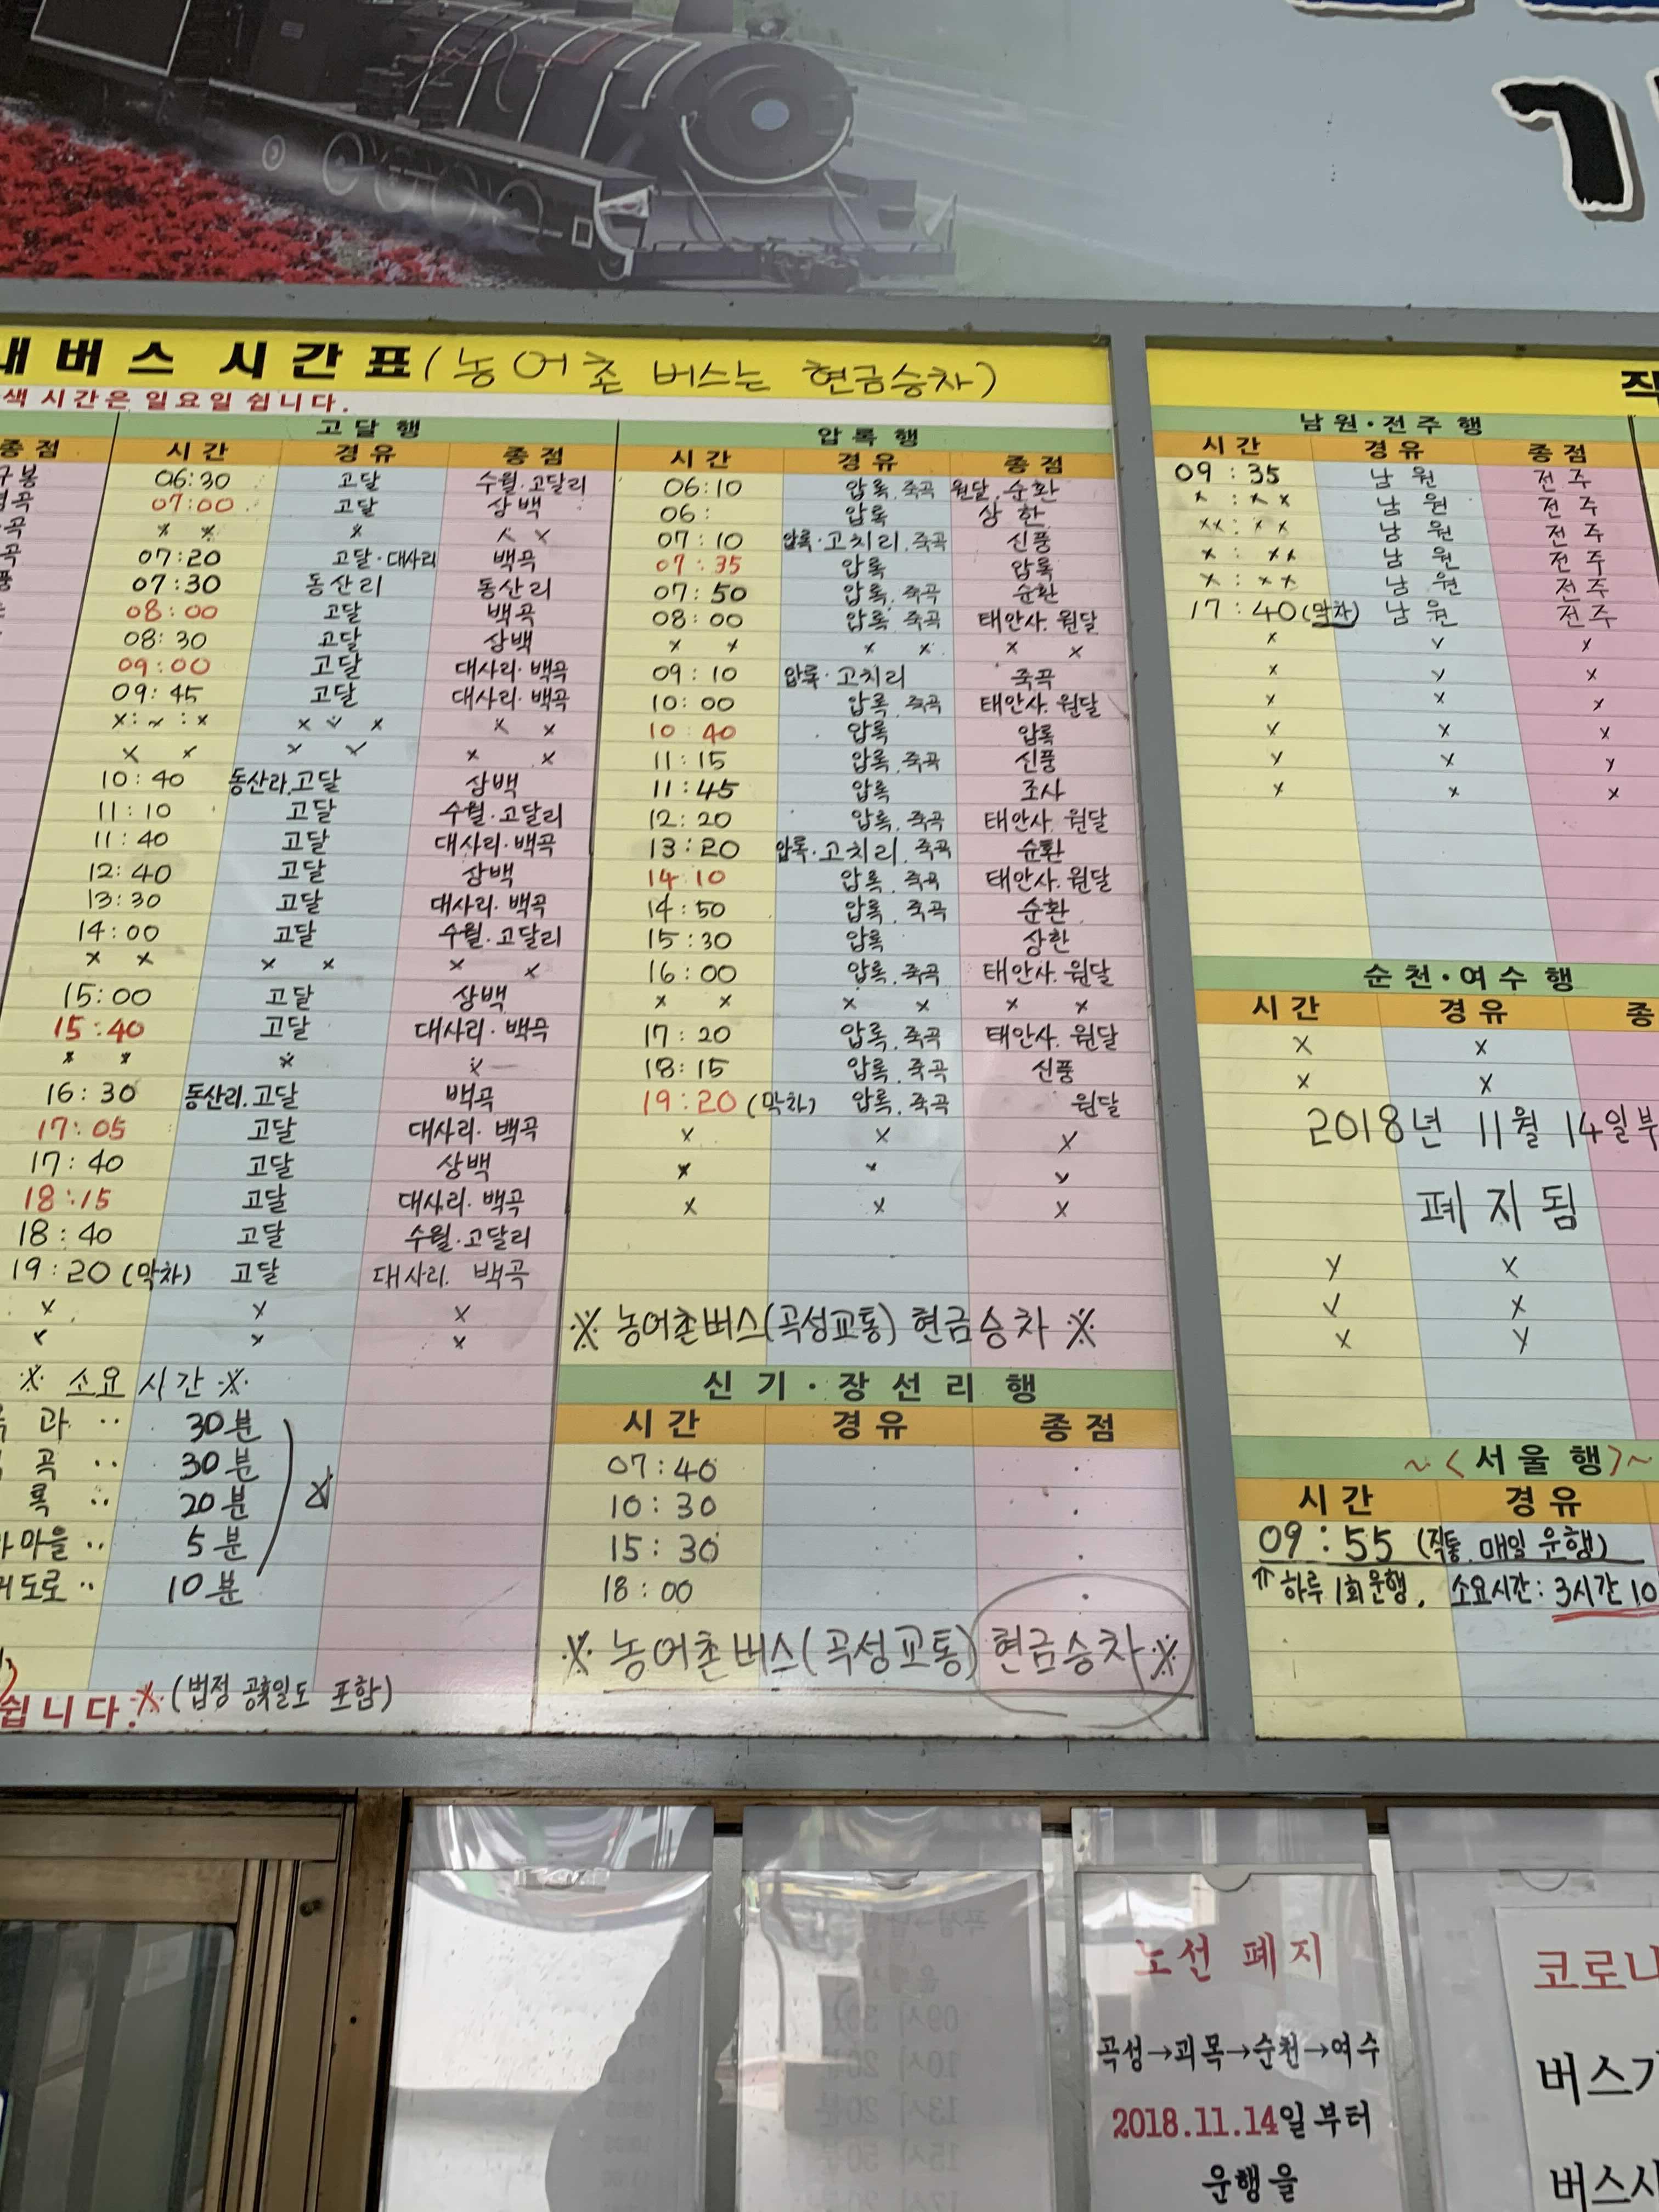 내버스 시간표(농어촌 버스는 현금승차)
색 시간은 일요일 쉽니다.
종점
구봉
고달행
시간 경유 종점
06:30 고달 수월.고달리
07:00 고달 상백
x x x x x
07:20 고달·대사리 백곡
07:30 동산리 동산리
08:00 고달 백곡
08:30 고달 상백
09:00 고달 대사리·백곡
09:45 고달 대사리·백곡
x:~:x x x x x x
x x x x x x
10:40 동산리.고달 상백
11:10 고달 수월.고달리
11:40 고달 대사리·백곡
12:40 고달 상백
13:30 고달 대사리·백곡
14:00 고달 수월.고달리
x x x x x x
15:00 고달 상백
15:40 고달 대사리·백곡
x x x x
16:30 동산리.고달 백곡
17:05 고달 대사리·백곡
17:40 고달 상백
18:15 고달 대사리·백곡
18:40 고달 수월.고달리
19:20(막차) 고달 대사리. 백곡
x x x
x x x
※ 소요 시간 ※
과 ·· 30분
곡 ·· 30분
록 ·· 20분
마을 ·· 5분
도로 ·· 10분
쉽니다.※ (법정 공휴일도 포함)
압록행
시간 경유 종점
06:10 압록.죽곡 원달.순환
06: 압록 상한
07:10 압록·고치리.죽곡 신풍
07:35 압록 압록
07:50 압록.죽곡 순환
08:00 압록.죽곡 태안사.원달
x x x x x x
09:10 압록·고치리 죽곡
10:00 압록.죽곡 태안사.원달
10:40 압록 압록
11:15 압록.죽곡 신풍
11:45 압록 조사
12:20 압록.죽곡 태안사.원달
13:20 압록·고치리.죽곡 순환
14:10 압록.죽곡 태안사.원달
14:50 압록.죽곡 순환
15:30 압록 상한
16:00 압록.죽곡 태안사.원달
x x x x x x
17:20 압록.죽곡 태안사.원달
18:15 압록.죽곡 신풍
19:20(막차) 압록.죽곡 원달
x x x
x x x
x x x
※ 농어촌버스(곡성교통) 현금승차 ※
신기·장선리행
시간 경유 종점
07:40 · ·
10:30 · ·
15:30 · ·
18:00 · ·
※ 농어촌버스(곡성교통) 현금승차 ※
남원·전주행
시간 경유 종점
09:35 남원 전주
x:xx 남원 전주
xx:xx 남원 전주
x:xx 남원 전주
x:xx 남원 전주
17:40(막차) 남원 전주
x x x
x x x
x x x
x x x
x x x
x x x
순천·여수행
시간 경유 종
x x
x x
2018년 11월 14일부
폐지됨
x x
x x
x x
~<서울행>~
시간 경유
09:55 (직통, 매일 운행)
⇑하루 1회운행, 소요시간: 3시간 10
노선 폐지
곡성→괴목→순천→여수
2018.11.14일부터
운행을
코로나
버스기
버스사